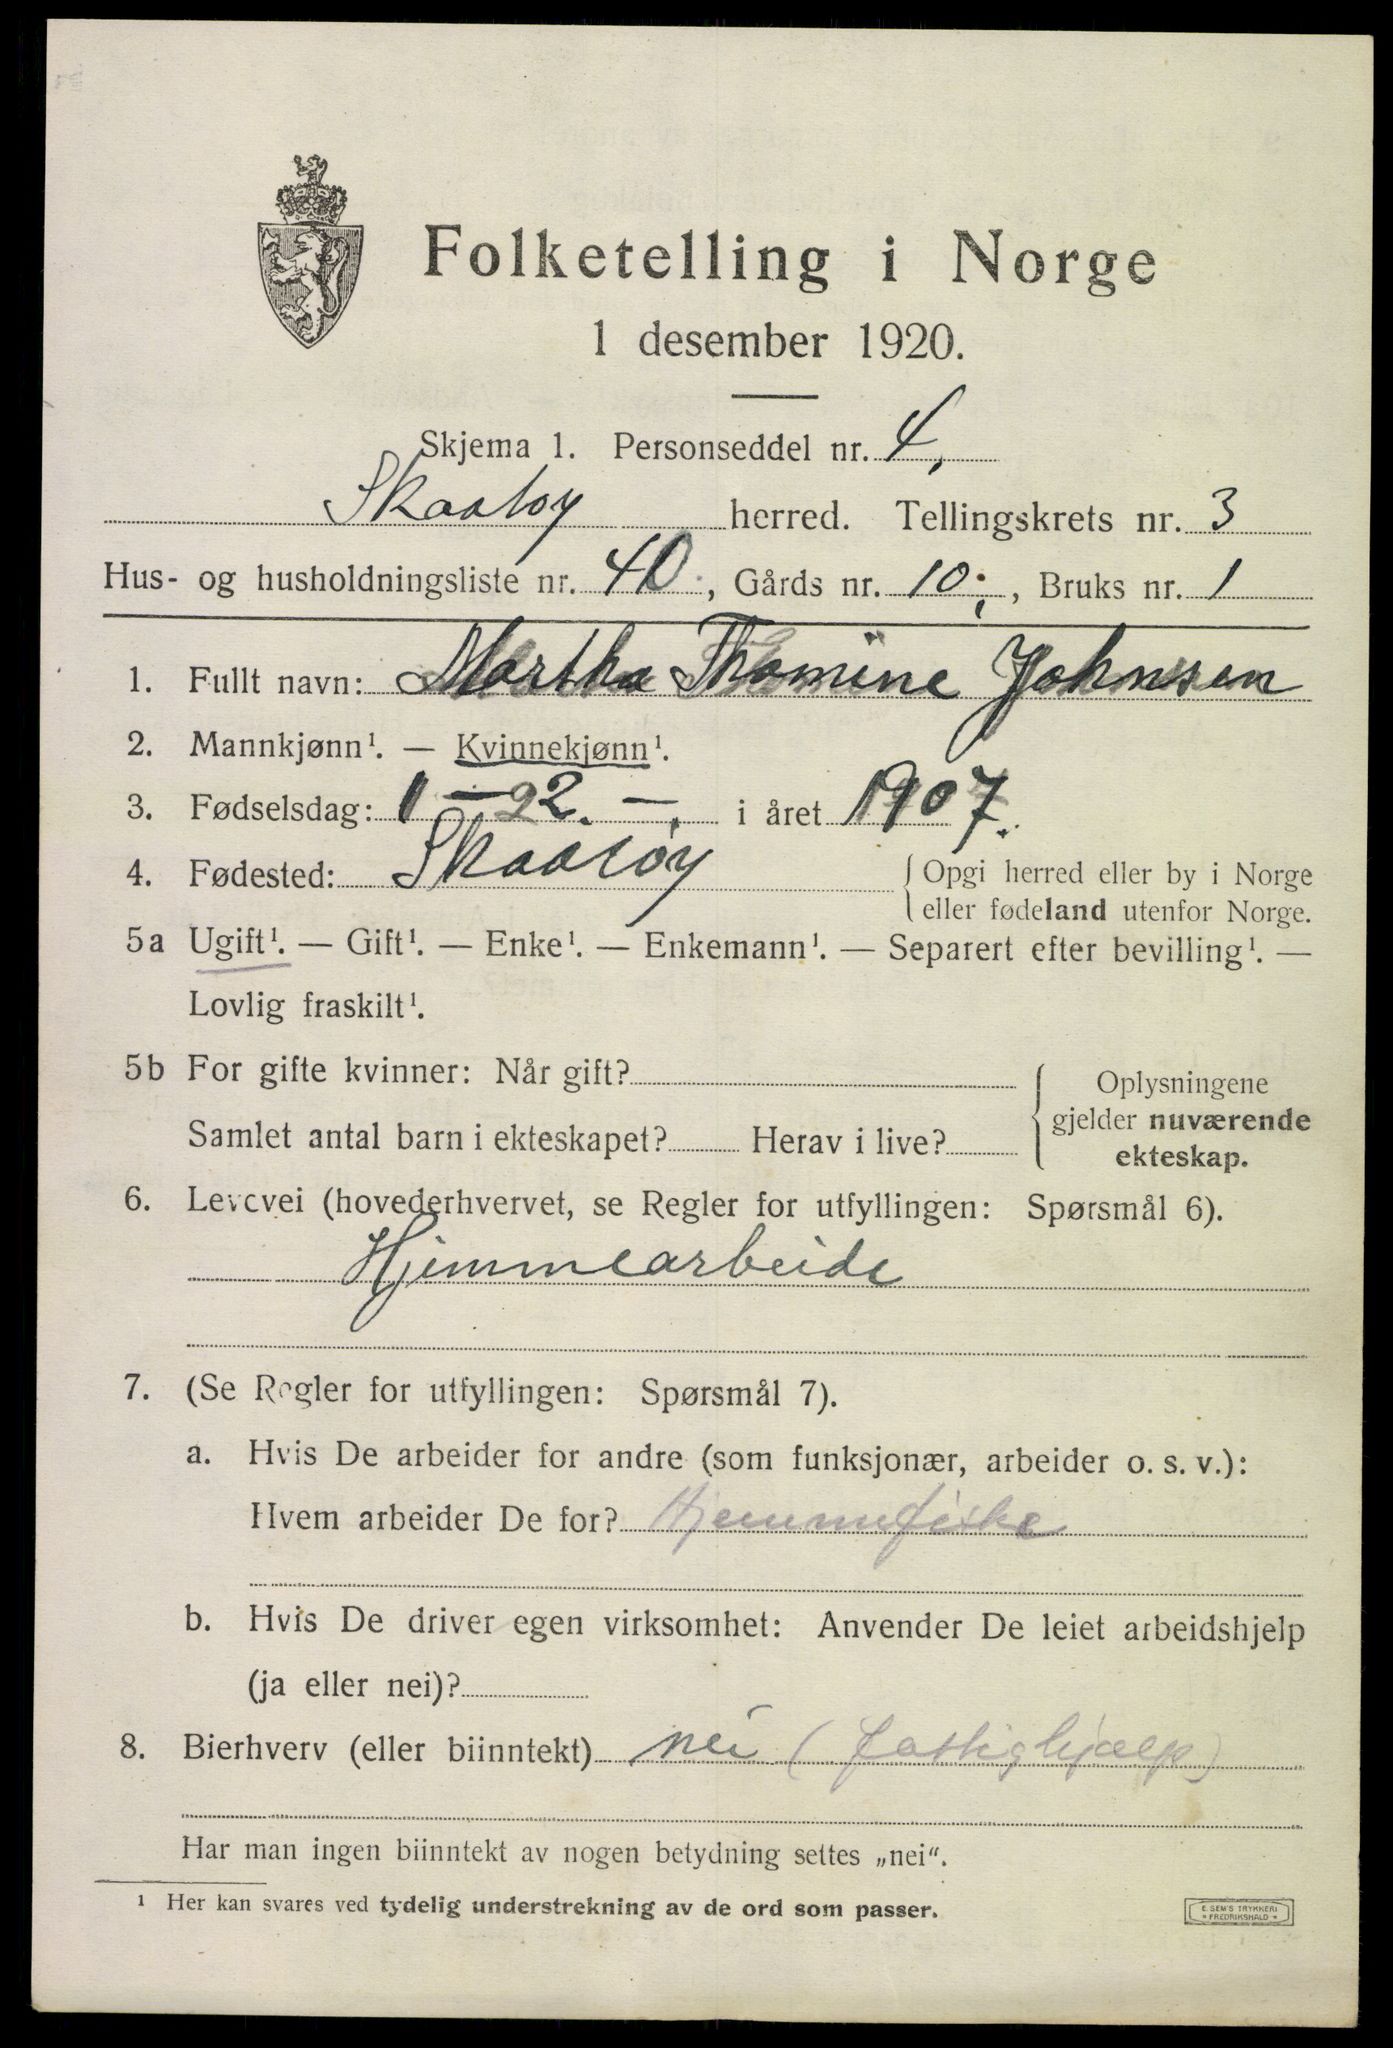 Folketelling i Norge
1 desember 1920.
Skjema 1. Personseddel nr. 4,
Skaatøy herred. Tellingskrets nr. 3
Hus- og husholdningsliste nr. 40, Gårds nr. 10;, Bruks nr. 1
1. Fullt navn: Martha Thomine Johnsen
2. Mannkjønn¹. — Kvinnekjønn¹.
3. Fødselsdag: — 22. — i året 1907.
4. Fødested: Skaatøy { Opgi herred eller by i Norge
eller fødeland utenfor Norge.
5a Ugift¹. — Gift¹. — Enke¹. — Enkemann¹. — Separert efter bevilling¹. —
Lovlig fraskilt¹.
5b For gifte kvinner: Når gift?
Samlet antal barn i ekteskapet? Herav i live?
{ Oplysningene
gjelder nuværende
ekteskap.
6. Levevei (hovederhvervet, se Regler for utfyllingen: Spørsmål 6).
Hjemmearbeide
7. (Se Regler for utfyllingen: Spørsmål 7).
a. Hvis De arbeider for andre (som funksjonær, arbeider o. s. v.):
Hvem arbeider De for? Hjemmefiske
b. Hvis De driver egen virksomhet: Anvender De leiet arbeidshjelp
(ja eller nei)?
8. Bierhverv (eller biinntekt) nei (fattighjælp)
Har man ingen biinntekt av nogen betydning settes „nei“.
¹ Her kan svares ved tydelig understrekning av de ord som passer.
E. SEM'S TRYKKERI
* FREDRIKSHALD *